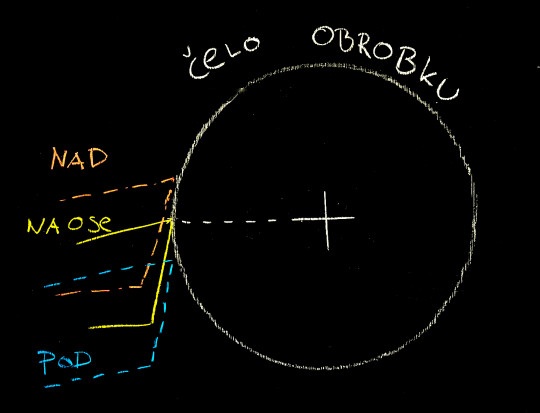 ČELO OBROBKU
NAD
NA OSE
POD